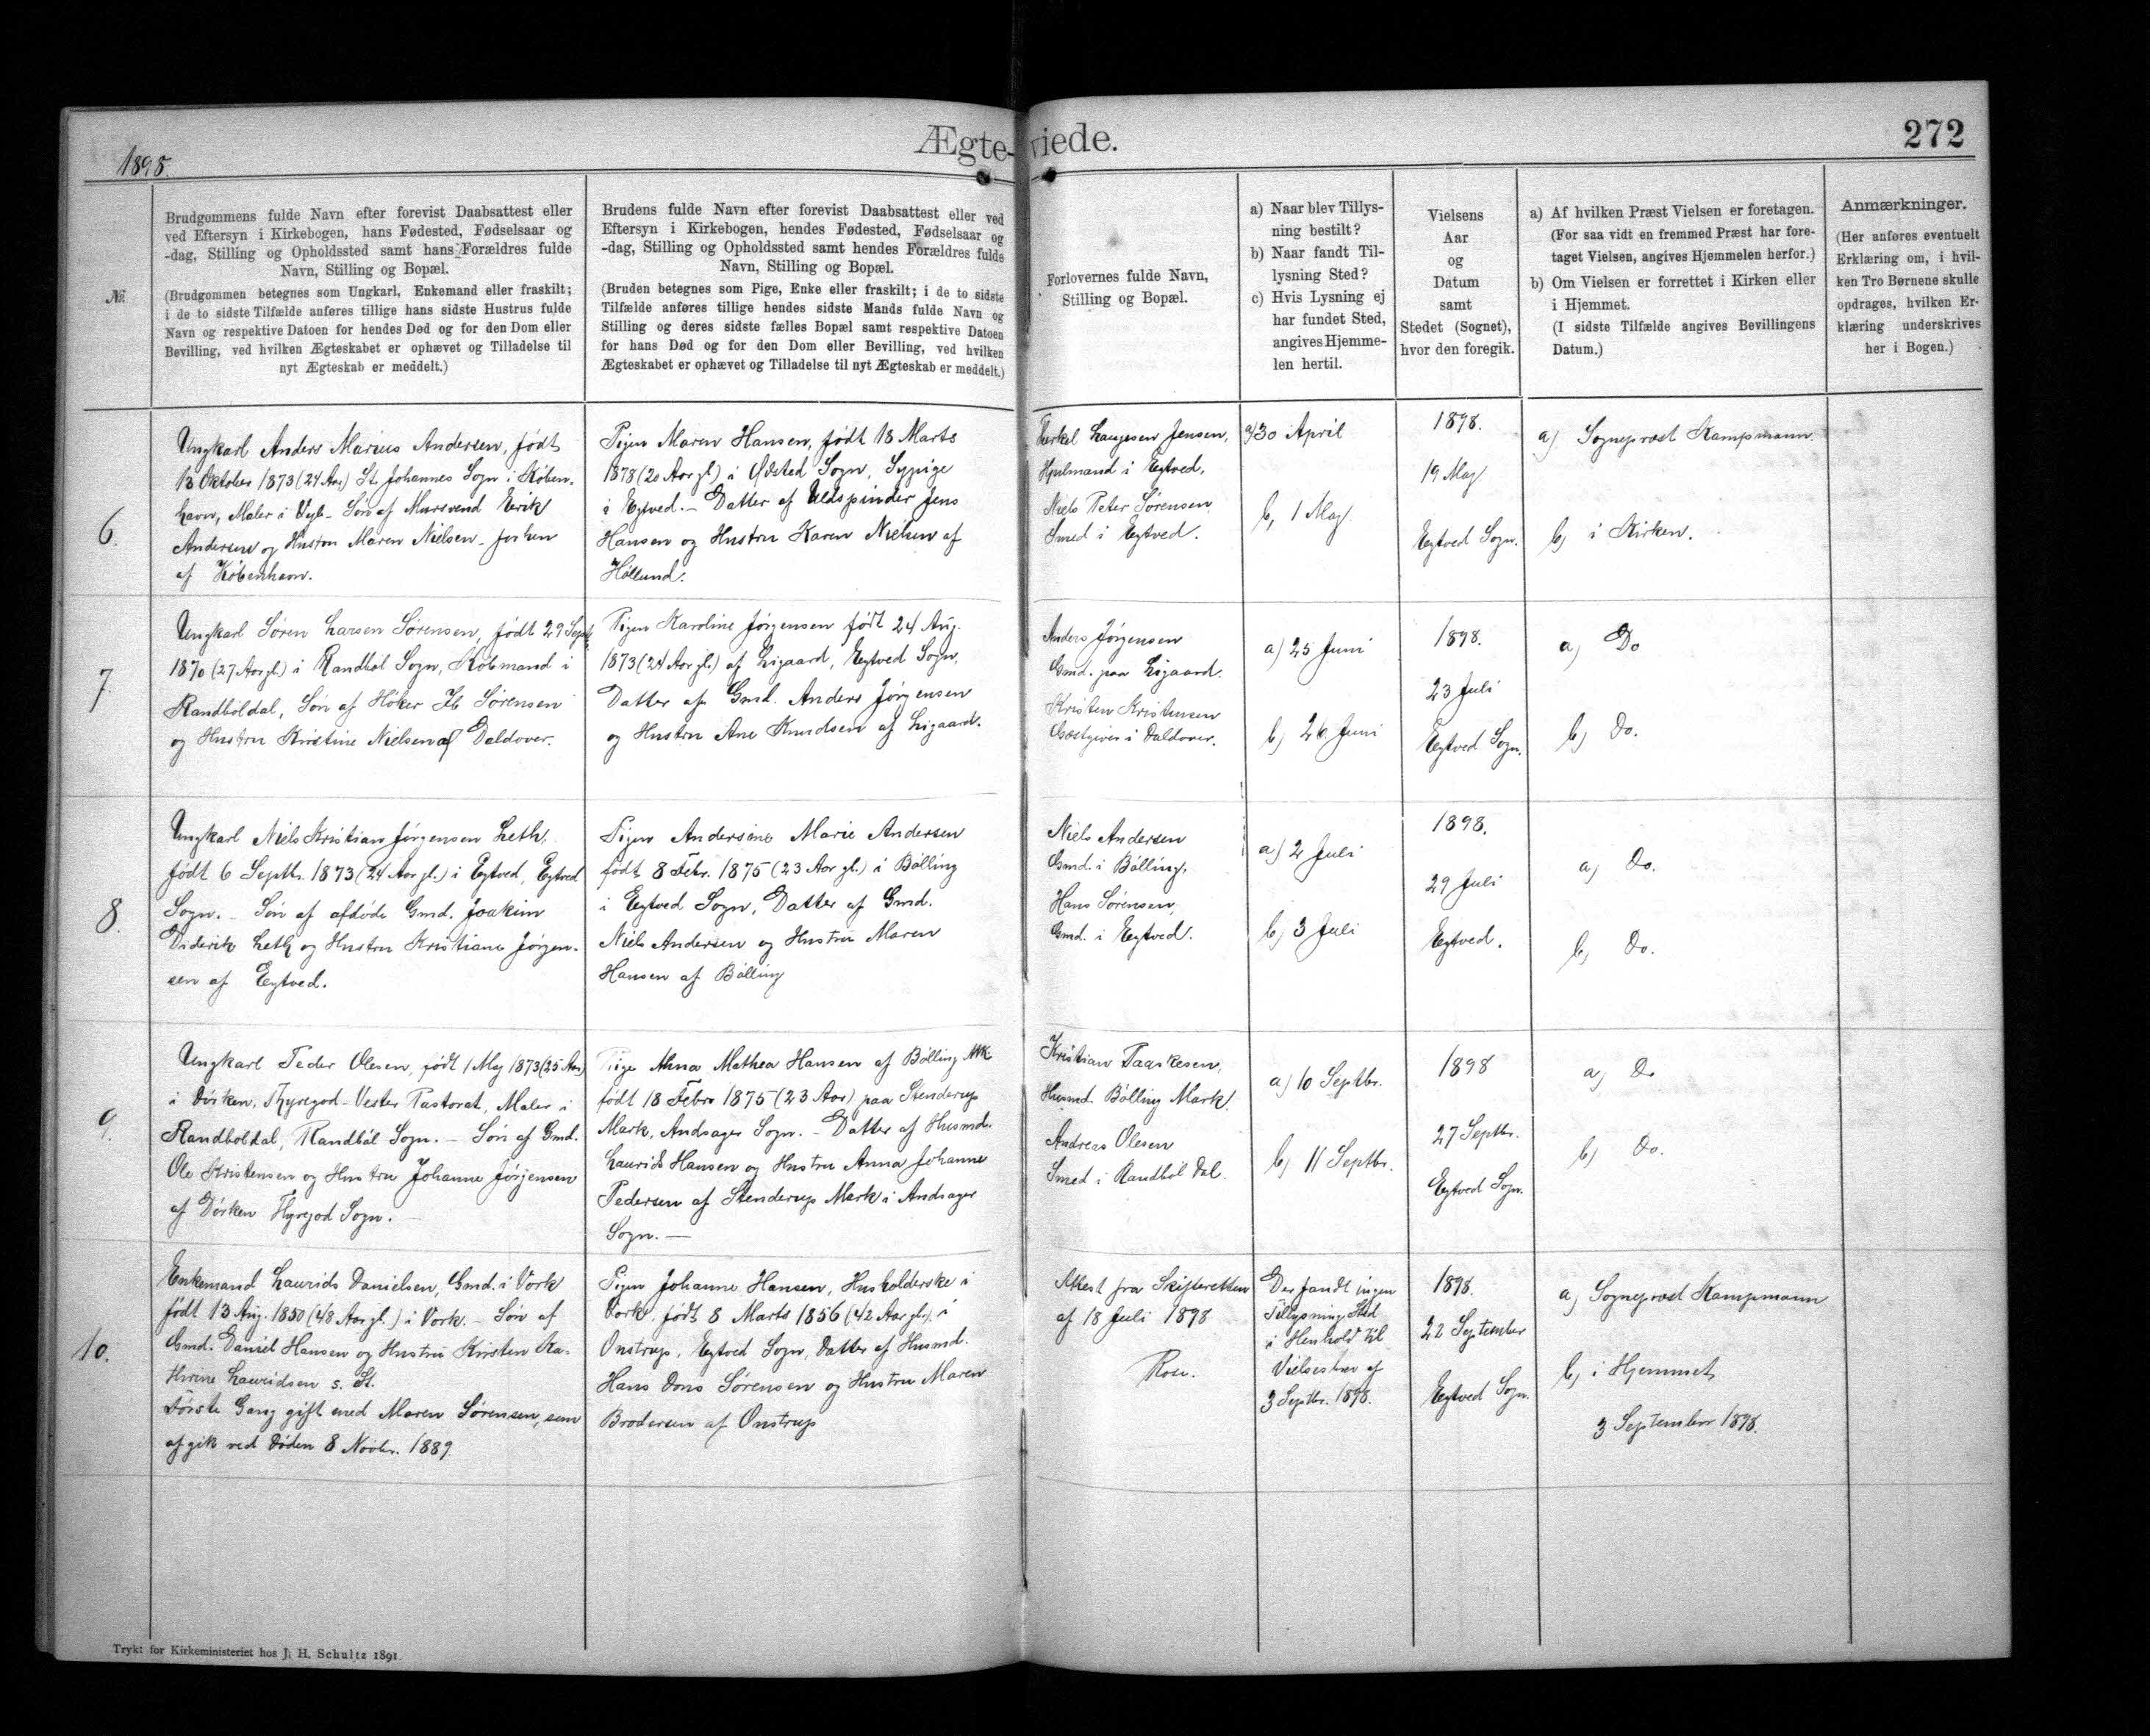 Ægte-viede.
272
1898.
№
Brudgommens fulde Navn efter forevist Daabsattest eller
ved Eftersyn i Kirkebogen, hans Fødested, Fødselsaar og
-dag, Stilling og Opholdssted samt hans Forældres fulde
Navn, Stilling og Bopæl.
(Brudgommen betegnes som Ungkarl, Enkemand eller fraskilt;
i de to sidste Tilfælde anføres tillige hans sidste Hustrus fulde
Navn og respektive Datoen for hendes Død og for den Dom eller
Bevilling, ved hvilken Ægteskabet er ophævet og Tilladelse til
nyt Ægteskab er meddelt.)
Brudens fulde Navn efter forevist Daabsattest eller ved
Eftersyn i Kirkebogen, hendes Fødested, Fødselsaar og
-dag, Stilling og Opholdssted samt hendes Forældres fulde
Navn, Stilling og Bopæl.
(Bruden betegnes som Pige, Enke eller fraskilt; i de to sidste
Tilfælde anføres tillige hendes sidste Mands fulde Navn og
Stilling og deres sidste fælles Bopæl samt respektive Datoen
for hans Død og for den Dom eller Bevilling, ved hvilken
Ægteskabet er ophævet og Tilladelse til nyt Ægteskab er meddelt.)
Forlovernes fulde Navn,
Stilling og Bopæl.
a) Naar blev Tillys-
ning bestilt?
b) Naar fandt Til-
lysning Sted?
c) Hvis Lysning ej
har fundet Sted,
angives Hjemme-
len hertil.
Vielsens
Aar
og
Datum
samt
Stedet (Sognet),
hvor den foregik.
a) Af hvilken Præst Vielsen er foretagen.
(For saa vidt en fremmed Præst har fore-
taget Vielsen, angives Hjemmelen herfor.)
b) Om Vielsen er forrettet i Kirken eller
i Hjemmet.
(I sidste Tilfælde angives Bevillingens
Datum.)
Anmærkninger.
(Her anføres eventuelt
Erklæring om, i hvil-
ken Tro Børnene skulle
opdrages, hvilken Er-
klæring underskrives
her i Bogen.)
6.
Ungkarl Anders Marius Andersen, født
18 Oktober 1873 (24 Aar) St. Johannes Sogn i Køben-
havn, Maler i Vejle - Søn af Mursvend Erik
Andersen og Hustru Maren Nielsen - forhen
af København.
Pigen Maren Hansen, født 18 Marts
1878 (20 Aar gl.) i Ødsted Sogn, Sypige
i Egtved. - Datter af Uldspinder Jens
Hansen og Hustru Karen Nielsen af
Høllund.
Terkel Laugesen Jensen,
Hjulmand i Egtved,
Niels Peter Sørensen
Smed i Egtved.
a) 30 April
b, 1 Maj
1898.
19 Maj
Egtved Sogn.
a) Sogneprovst Kampmann
b, i Kirken.
7.
Ungkarl Søren Larsen Sørensen, født 29 Septb.
1870 (27 Aar gl.) i Randbøl Sogn, Købmand i
Randböldal, Søn af Høker Ib Sørensen
og Hustru Kirstine Nielsen af Daldover.
Pigen Karoline Jørgensen født 24 Aug.
1873 (24 Aar gl.) af Ligaard, Egtved Sogn,
Datter af Gmd. Anders Jørgensen
og Hustru Ane Knudsen af Ligaard.
Anders Jørgensen
Gmd. paa Ligaard.
Kristen Kristensen
Gæstgiver i Daldover.
a) 25 Juni
b) 26 Juni
1898.
23 Juli
Egtved Sogn.
a) Do
b) Do.
8.
Ungkarl Niels Kristian Jørgensen Leth,
født 6 Septb. 1873 (24 Aar gl.) i Egtved, Egtved
Sogn. - Søn af afdøde Gmd. Joakim
Diderik Leth og Hustru Kristiane Jørgen-
sen af Egtved.
Pigen Andersine Marie Andersen
født 8 Febr. 1875 (23 Aar gl.) i Bølling
i Egtved Sogn, Datter af Gmd.
Niels Andersen og Hustru Maren
Hansen af Bølling
Niels Andersen
Gmd. i Bølling,
Hans Sørensen,
Gmd. i Egtved.
a) 2 Juli
b) 3 Juli
1898.
29 Juli
Egtved.
a) Do.
b) Do.
9.
Ungkarl Peder Olesen, født 1 Maj 1873 (25 Aar)
i Dörken, Thyregod-Vester Pastorat, Maler i
Randböldal, Randböl Sogn. - Søn af Gmd.
Ole Kristensen og Hustru Johanne Jørgensen
af Dörken Thyregod Sogn.
Pige Anna Mathea Hansen af Bølling Mk.
født 18 Febr 1875 (23 Aar) paa Stenderup
Mark, Andsager Sogn. - Datter af Husmd.
Laurids Hansen og Hustru Anna Johanne
Pedersen af Stenderup Mark i Andsager
Sogn.
Kristian Paaskesen,
Husmd. Bølling Mark.
Andreas Olesen
Smed i Randböl Dal.
a) 10 Septbr.
b) 11 Septbr.
1898
27 Septbr.
Egtved Sogn.
a) Do
b) Do.
10.
Enkemand Laurids Danielsen, Gmd. i Vork
født 13 Aug. 1850 (48 Aar gl.) i Vork. - Søn af
Gmd. Daniel Hansen og Hustru Kirsten Ka-
thrine Lauridsen s. St.
Første Gang gift med Maren Sørensen, som
afgik ved Døden 8 Novbr. 1889.
Pigen Johanne Hansen, Husholderske i
Vork, født 8 Marts 1856 (42 Aar gl.) i
Onstrup, Egtved Sogn, Datter af Husmd.
Hans Dons Sørensen og Hustru Maren
Brodersen af Onstrup
Attest fra Skifteretten
af 18 Juli 1898
Rosen.
Der fandt ingen
Tillysning Sted
i Henhold til
Vielsesbrev af
3 Septbr. 1898.
1898.
22 September
Egtved Sogn.
a) Sogneprovst Kampmann
b, i Hjemmet
3 September 1898.
Trykt for Kirkeministeriet hos J. H. Schultz 1891.